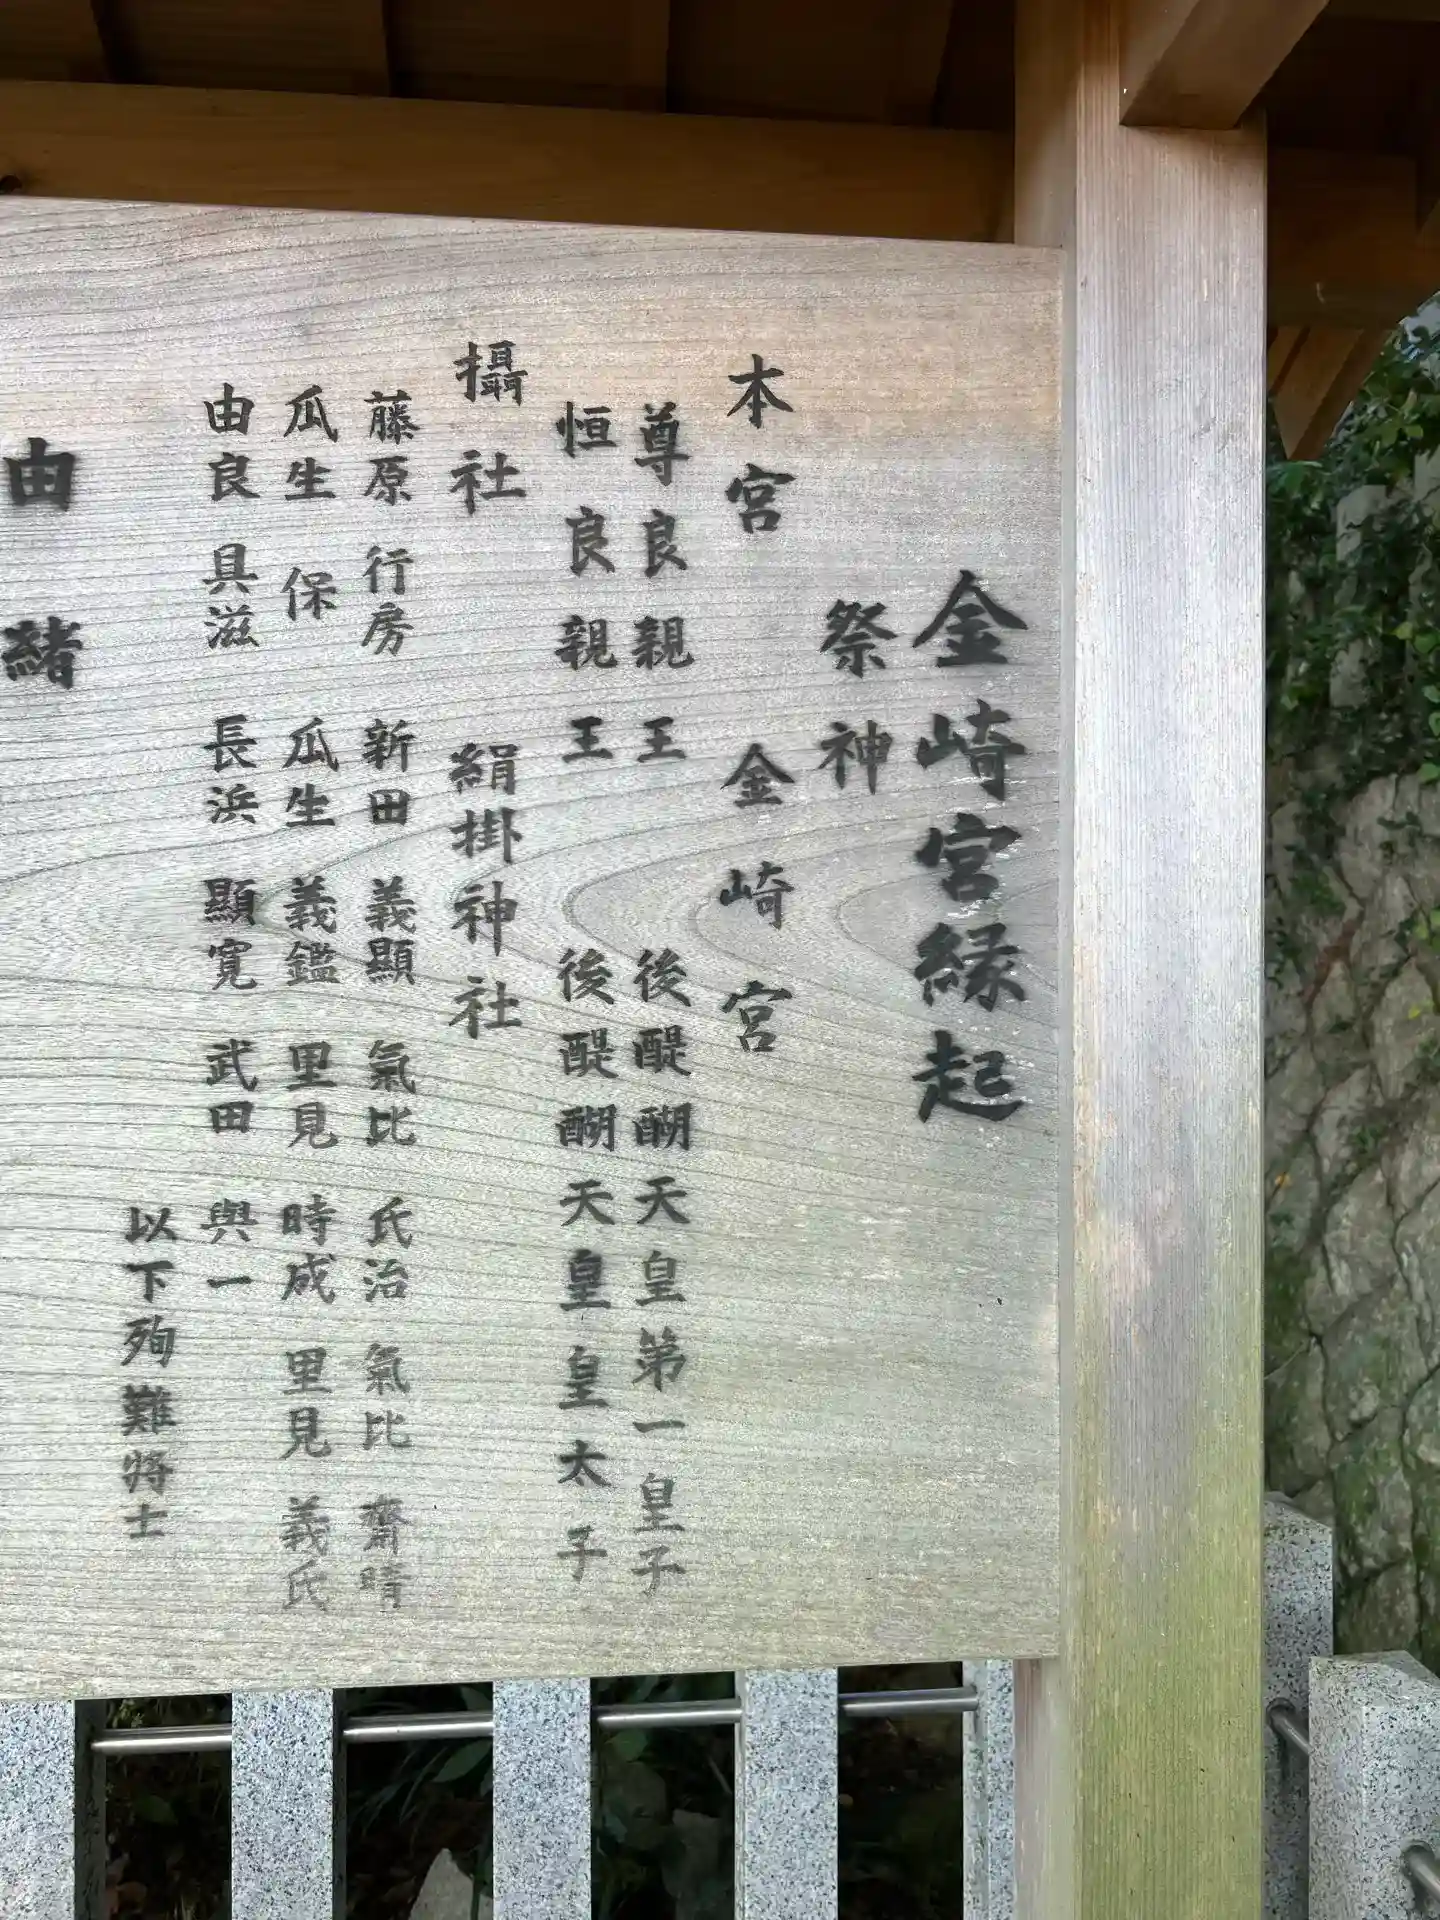 金崎宮縁起
祭神
本宮 金崎宮
尊良親王 後醍醐天皇第一皇子
恒良親王 後醍醐天皇皇太子
攝社 絹掛神社
藤原行房 新田義顯 氣比氏治 氣比齋晴
瓜生保 瓜生義鑑 里見時成 里見義氏
由良具滋 長浜顯寛 武田與一
以下殉難将士
由緒